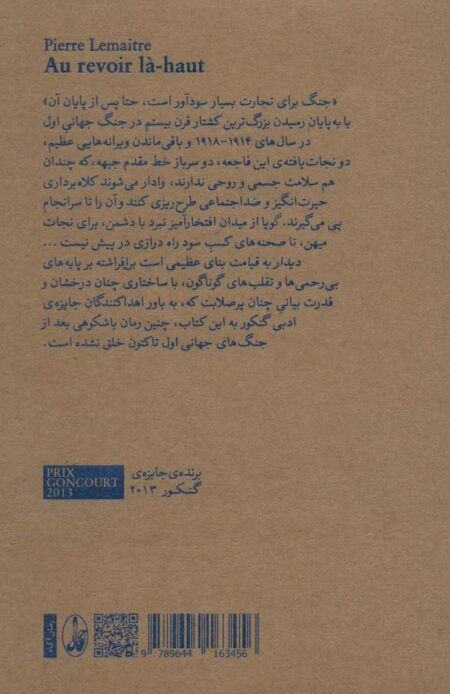 Pierre Lemaitre
Au revoir là-haut
«جنگ برای تجارت بسیار سودآور است، حتا پس از پایان آن»
با به‌پایان رسیدن بزرگ‌ترین کشتار قرن بیستم در جنگ جهانی اول
در سال‌های ۱۹۱۴-۱۹۱۸ و باقی‌ماندن ویرانه‌هایی عظیم،
دو نجات‌یافته‌ی این فاجعه، دو سرباز خط مقدم جبهه، که چندان
هم سلامت جسمی و روحی ندارند، وادار می‌شوند کلاه‌برداری
حیرت‌انگیز و ضداجتماعی طرح‌ریزی کنند و آن را تا سرانجام
پی می‌گیرند. گویا از میدان افتخارآمیز نبرد با دشمن، برای نجات
میهن، تا صحنه‌های کسب سود راه درازی در پیش نیست ...
دیدار به قیامت بنای عظیمی است برافراشته بر پایه‌های
بی‌رحمی‌ها و تقلب‌های گوناگون، با ساختاری چنان درخشان و
قدرت بیانی چنان پرصلابت که، به باور اهداکنندگان جایزه‌ی
ادبی گنکور به این کتاب، چنین رمان باشکوهی بعد از
جنگ‌های جهانی اول تاکنون خلق نشده است.
PRIX
GONCOURT
2013
برنده‌ی جایزه‌ی
گنکور ۲۰۱۳
9 789644 163456